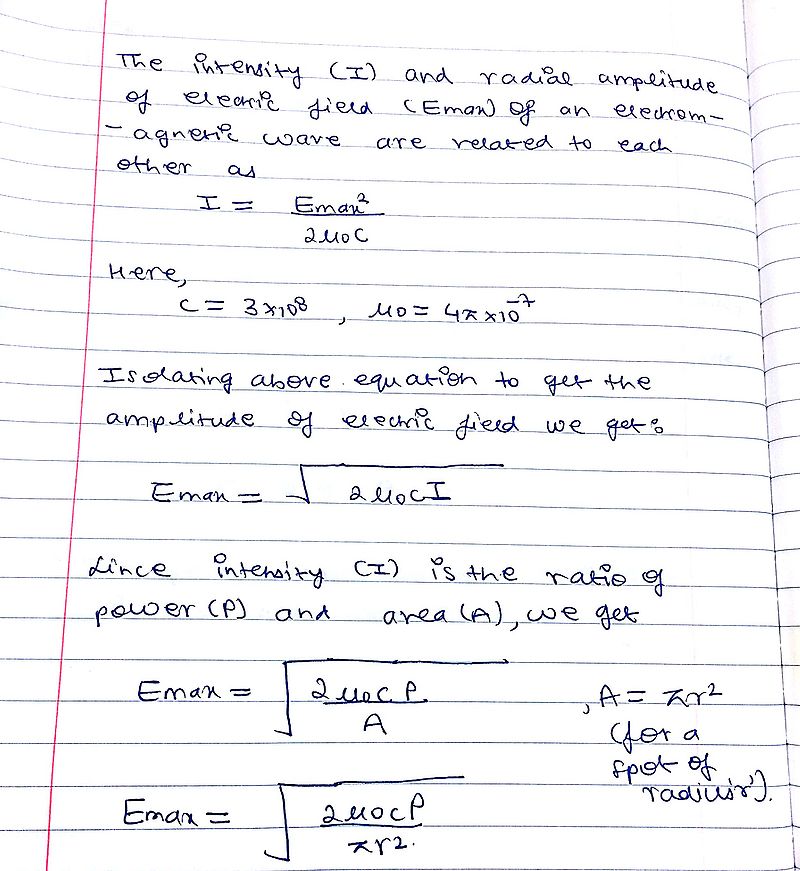 The intensity (I) and radial amplitude
of electric field (Emax) of an electrom-
-agnetic wave are related to each
other as
I = Emax²
2μ0C
Here,
c = 3×10⁸ , μ0 = 4π×10⁻⁷
Isolating above equation to get the
amplitude of electric field we get:
Emax = √2μ0CI
Since intensity (I) is the ratio of
power (P) and area (A), we get
Emax = √2μ0CP/A , A = πr²
(for a
spot of
radius 'r').
Emax = √2μ0CP/πr².